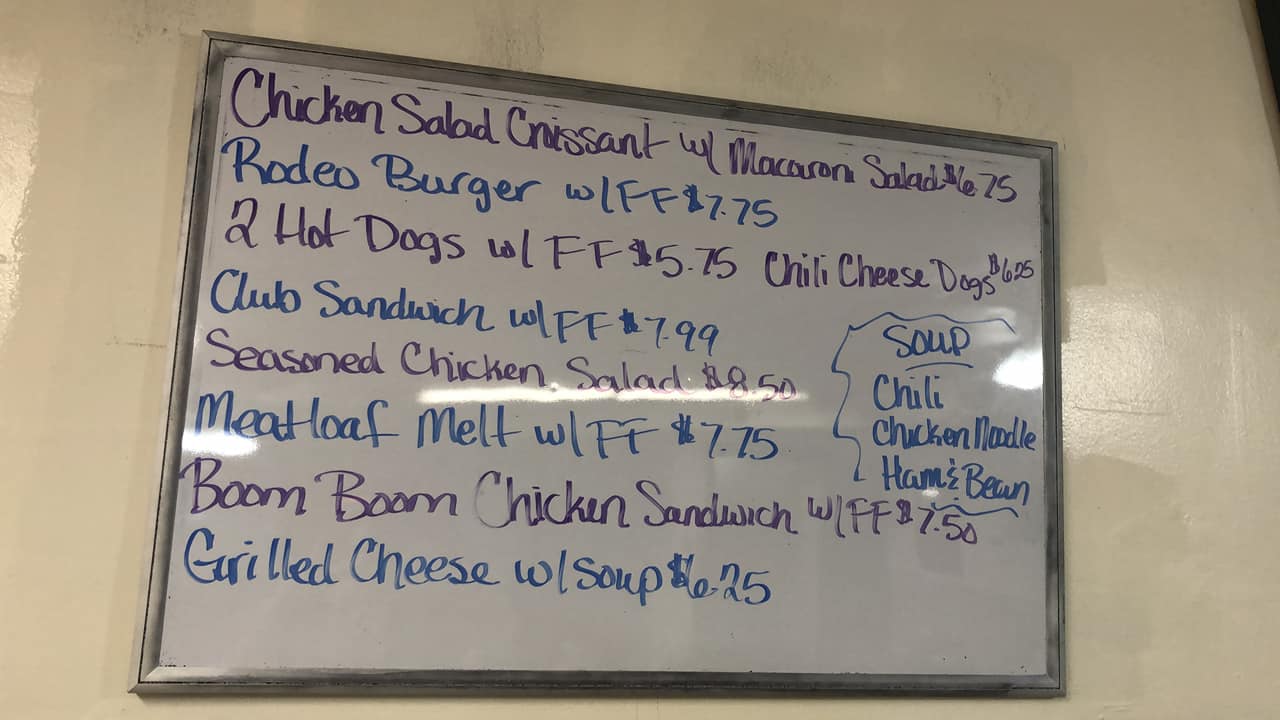 Chicken Salad Croissant w/ Macaroni Salad $6.75
Rodeo Burger w/FF $7.75
2 Hot Dogs w/ FF $5.75 Chili Cheese Dogs $6.25
Club Sandwich w/FF $7.99
Seasoned Chicken Salad $8.50
Meatloaf Melt w/FF $7.75
Boom Boom Chicken Sandwich w/FF $7.50
Grilled Cheese w/soup $6.25
Soup
Chili
Chicken Noodle
Ham & Bean